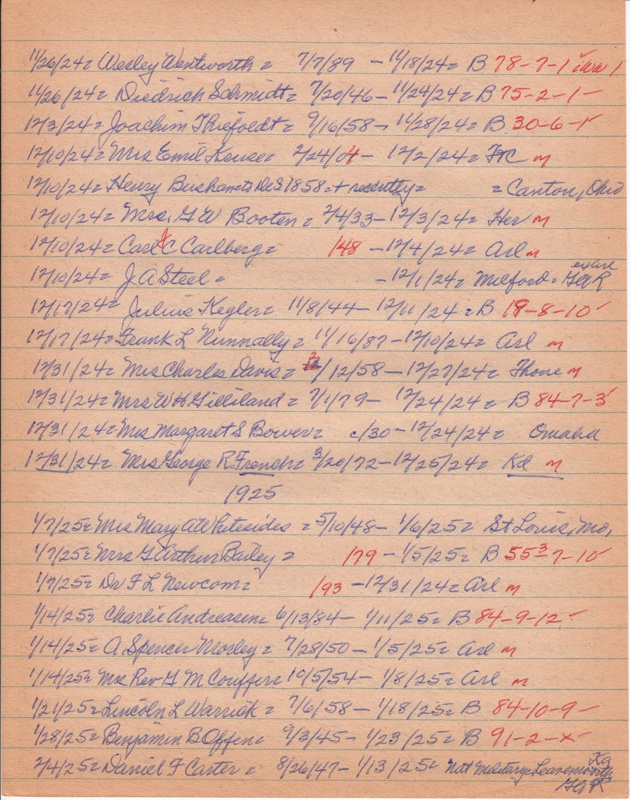 11/26/24 = Wesley Wentworth = 7/7/89 - 11/18/24 = B 78-7-1 ✓
11/26/24 = Diedrich Schmidt = 7/20/46 - 11/24/24 = B 75-2-1 -
12/3/24 = Joachim Thiefoldt = 9/16/58 - 11/28/24 = B 30-6-1 ✓
12/10/24 = Mrs Emil Kruse = 2/24/04 - 12/2/24 = FtC m
12/10/24 = Henry 1858 = + recently = = Canton, Ohio
12/10/24 = Mrs. G W Booten = 2/4/33 - 12/3/24 = Her m
12/10/24 = Carl C Carlberg = 148 - 12/4/24 = Arl m
12/10/24 = J A Steel = - 12/1/24 = Milford = GAR
12/17/24 = Julius Kegler = 11/8/44 - 12/11/24 = B 19-8-10 ✓
12/17/24 = Frank L Nunnally = 11/16/87 - 12/10/24 = Arl m
12/31/24 = Mrs Charles Davis = 2/12/58 - 12/27/24 = Thone m
12/31/24 = Mrs W H Gilliland = 7/1/79 - 12/24/24 = B 84-7-3 ✓
12/31/24 = Mrs Margaret S Bower = c/30 - 12/24/24 = Omaha
12/31/24 = Mrs George R French = 3/20/72 - 12/25/24 = Kd m
1925
1/7/25 = Mrs Mary Ate Whitesides = 5/10/48 - 1/6/25 = St Louis, Mo,
1/7/25 = Mrs G Arthur Bailey = 179 - 1/5/25 = B 55-3-7-10 ✓
1/7/25 = Dr F L Newcom = 193 - 12/31/24 = Arl m
1/14/25 = Charlie Andreasen = 6/13/84 - 1/11/25 = B 84-9-12 ✓
1/14/25 = A Spencer Morley = 7/28/50 - 1/5/25 = Arl m
1/14/25 = Mrs Rev G M Couffer = 10/5/54 - 1/8/25 = Arl m
1/21/25 = Lincoln L Warrick = 7/6/58 - 1/18/25 = B 84-10-9 -
1/28/25 = Benjamin B Offen = 9/3/45 - 1/23/25 = B 91-2-x -
2/4/25 = Daniel F Carter = 8/26/47 - 1/13/25 = Nat Military Leavenworth Ks GAR